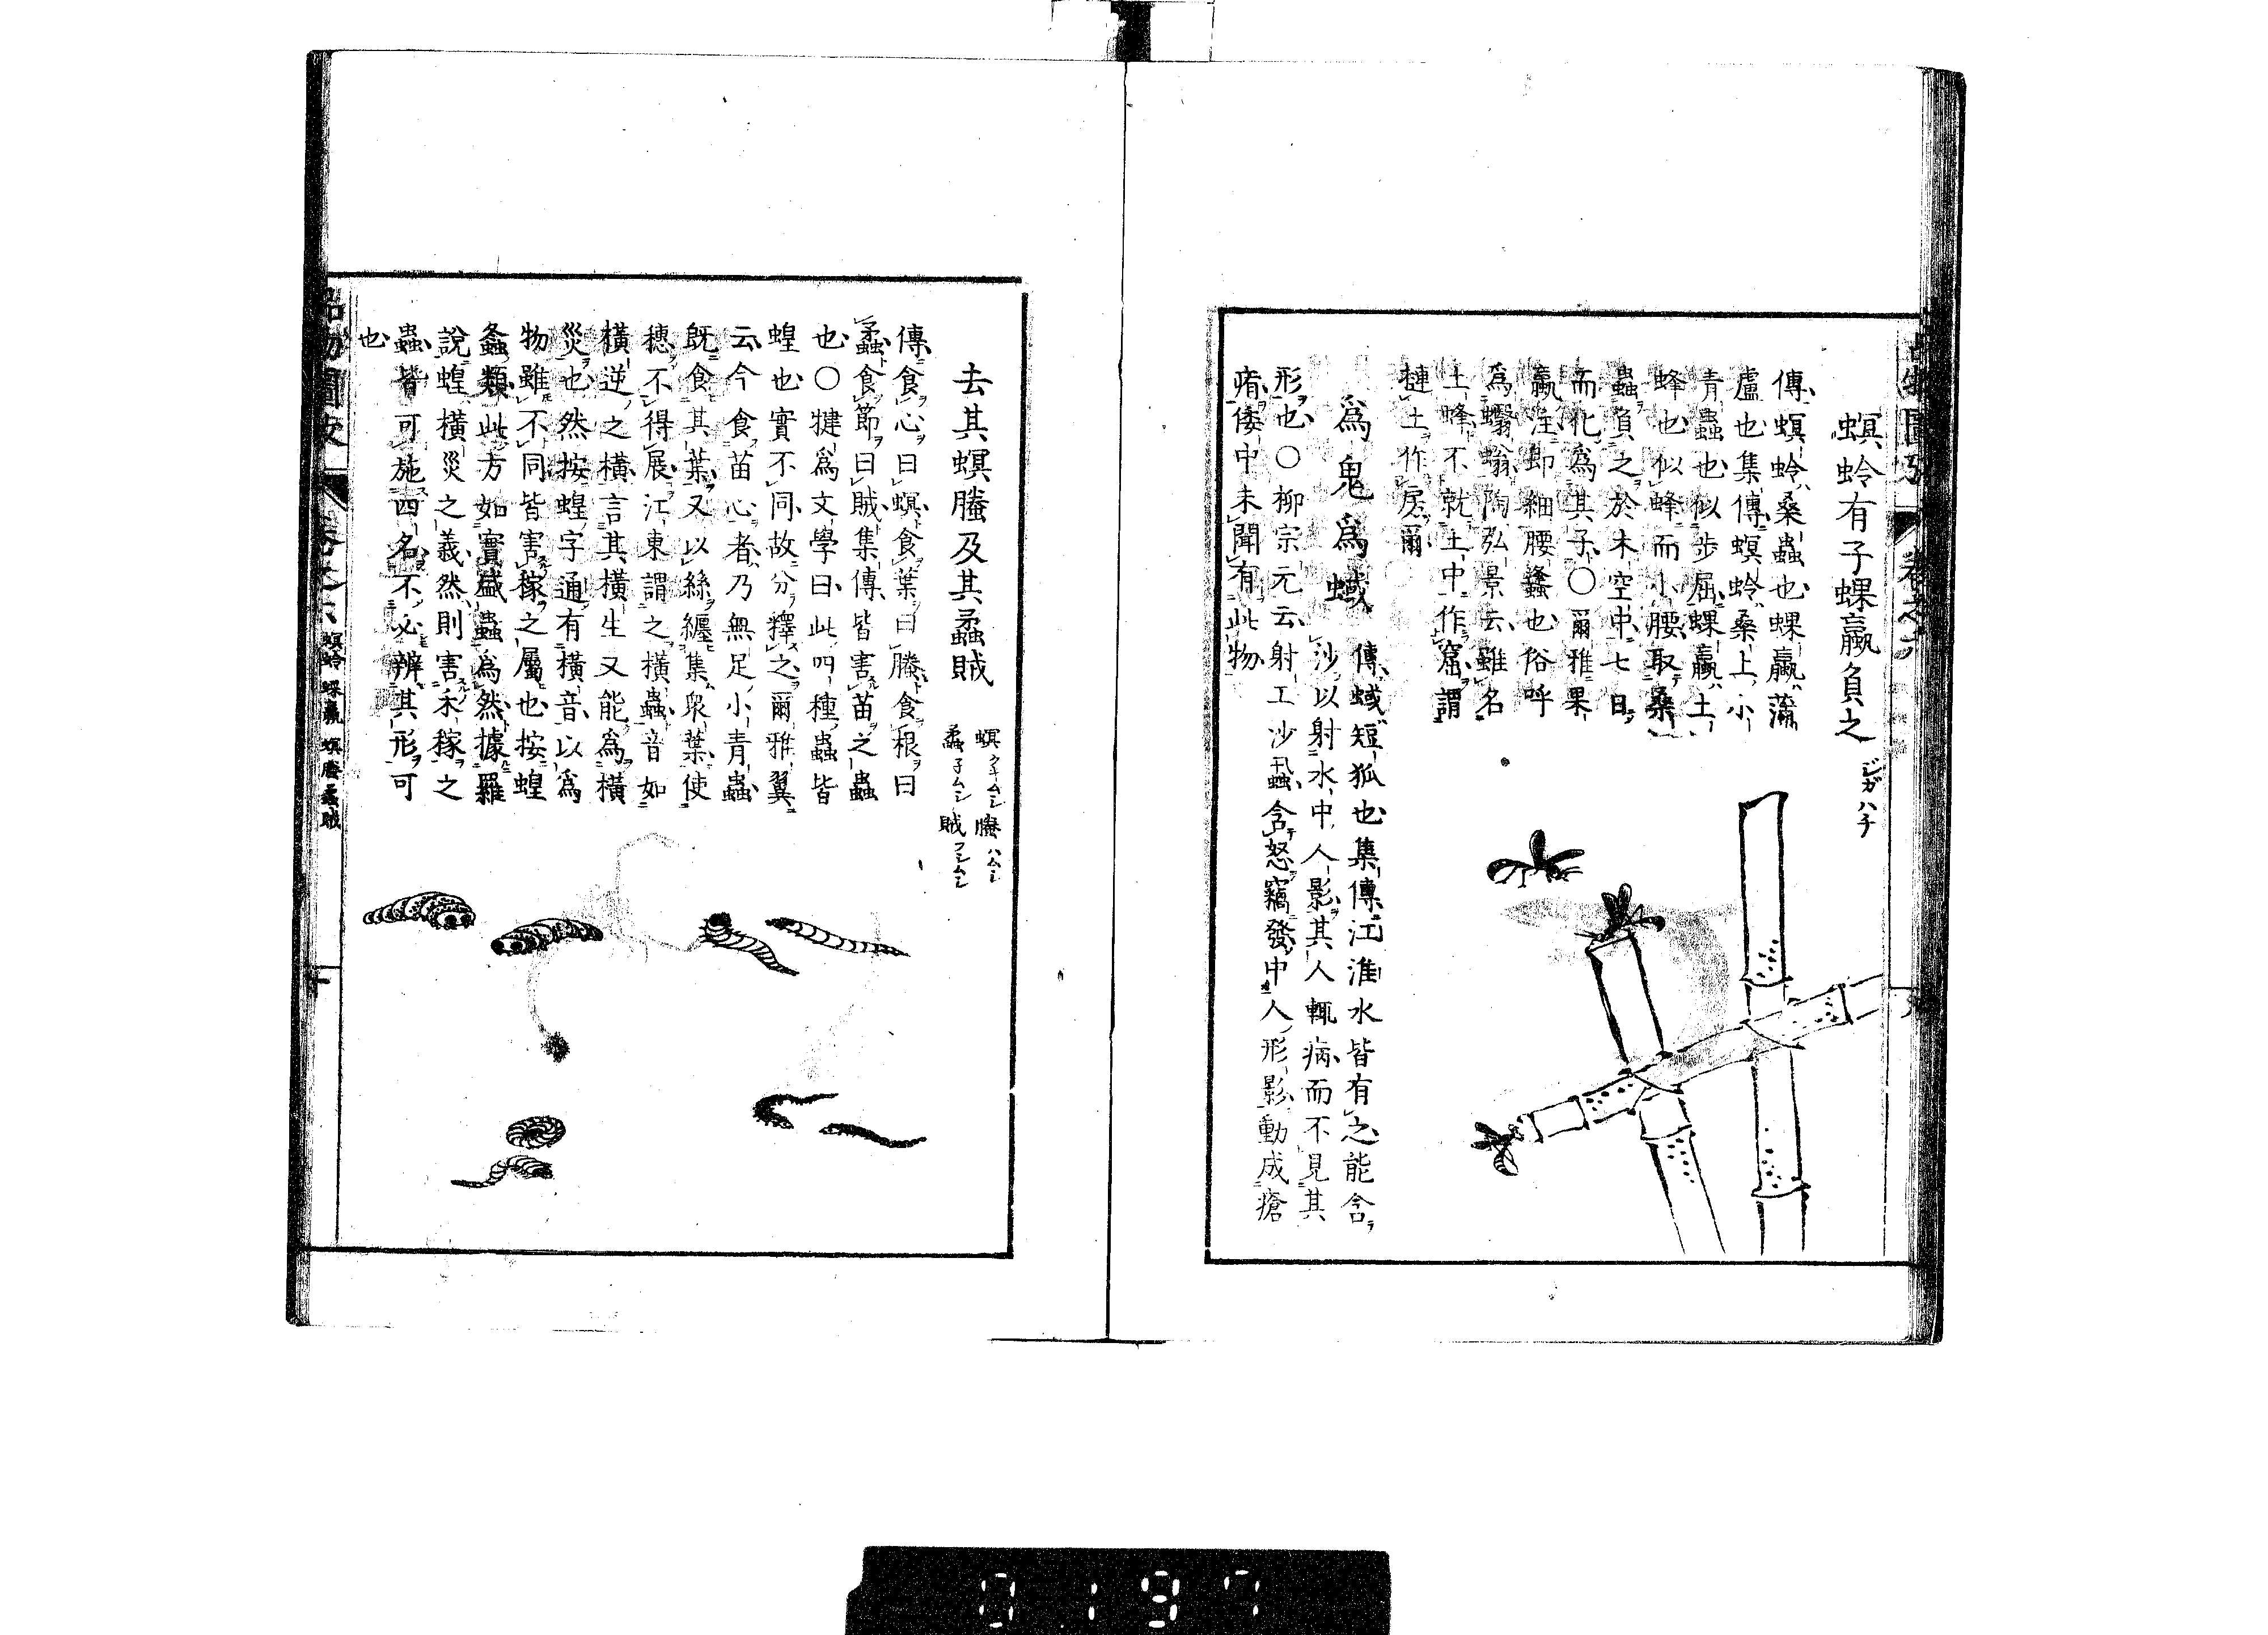 螟蛉有子蜾蠃負之
ジガハチ
傳螟蛉桑蟲也蜾蠃蒲
盧也集傳螟蛉桑上小
青蟲也似步屈蜾蠃土
蜂也似蜂而小腰取桑
蟲負之於木空中七日
而化為其子○爾雅果
蠃注即細腰蠭也俗呼
為蠮螉陶弘景云雖名
土蜂不就土中作窟謂
摙土作房爾
為鬼為蜮
傳蜮短狐也集傳江淮水皆有之能含
沙以射水中人影其人輒病而不見其
形也○柳宗元云射工沙虱蟲含怒竊發中人形影動成瘡
痏倭中未聞有此物
去其螟螣及其蟊賊
螟 クキムシ 螣 ハムシ
蟊 子ムシ 賊 フシムシ
傳食心曰螟食葉曰螣食根曰
蟊食節曰賊集傳皆害苗之蟲
也○犍為文學曰此四種蟲皆
蝗也實不同故分釋之爾雅翼
云今食苗心者乃無足小青蟲
既食其葉又以絲纏集衆葉使
穗不得展江東謂之橫蟲音如
橫逆之橫言其橫生又能為橫
災也然按蝗字通有橫音以為
物雖不同皆害稼之屬也按蝗
螽類此方如實盛蟲為然據羅
說蝗橫災之義然則害禾稼之
蟲皆可施四名不必辨其形可
也
卷之六
螟蛉 蜾蠃 螟螣 蟊賊
十
0197